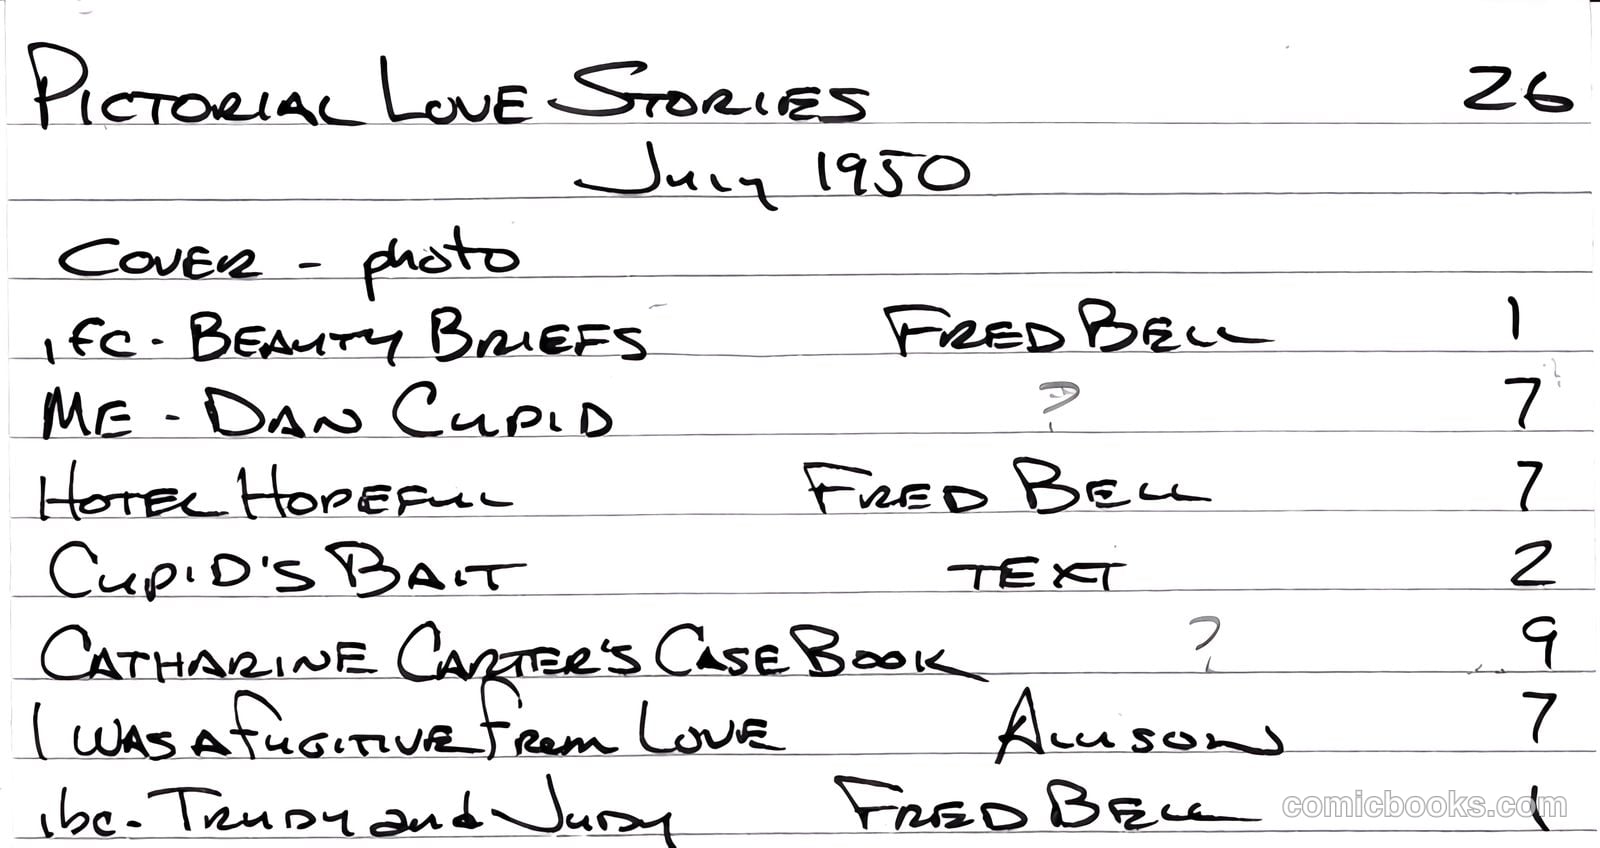 PICTORIAL LOVE STORIES 26
JULY 1950
COVER - photo
ifc - BEAUTY BRIEFS FRED BELL 1
ME - DAN CUPID ? 7
HOTEL HOPEFULL FRED BELL 7
CUPID'S BAIT TEXT 2
CATHARINE CARTER'S CASE BOOK ? 9
I WAS A FUGITIVE FROM LOVE ALLISON 7
ibc - TRUDY and JUDY FRED BELL 1
comicbooks.com